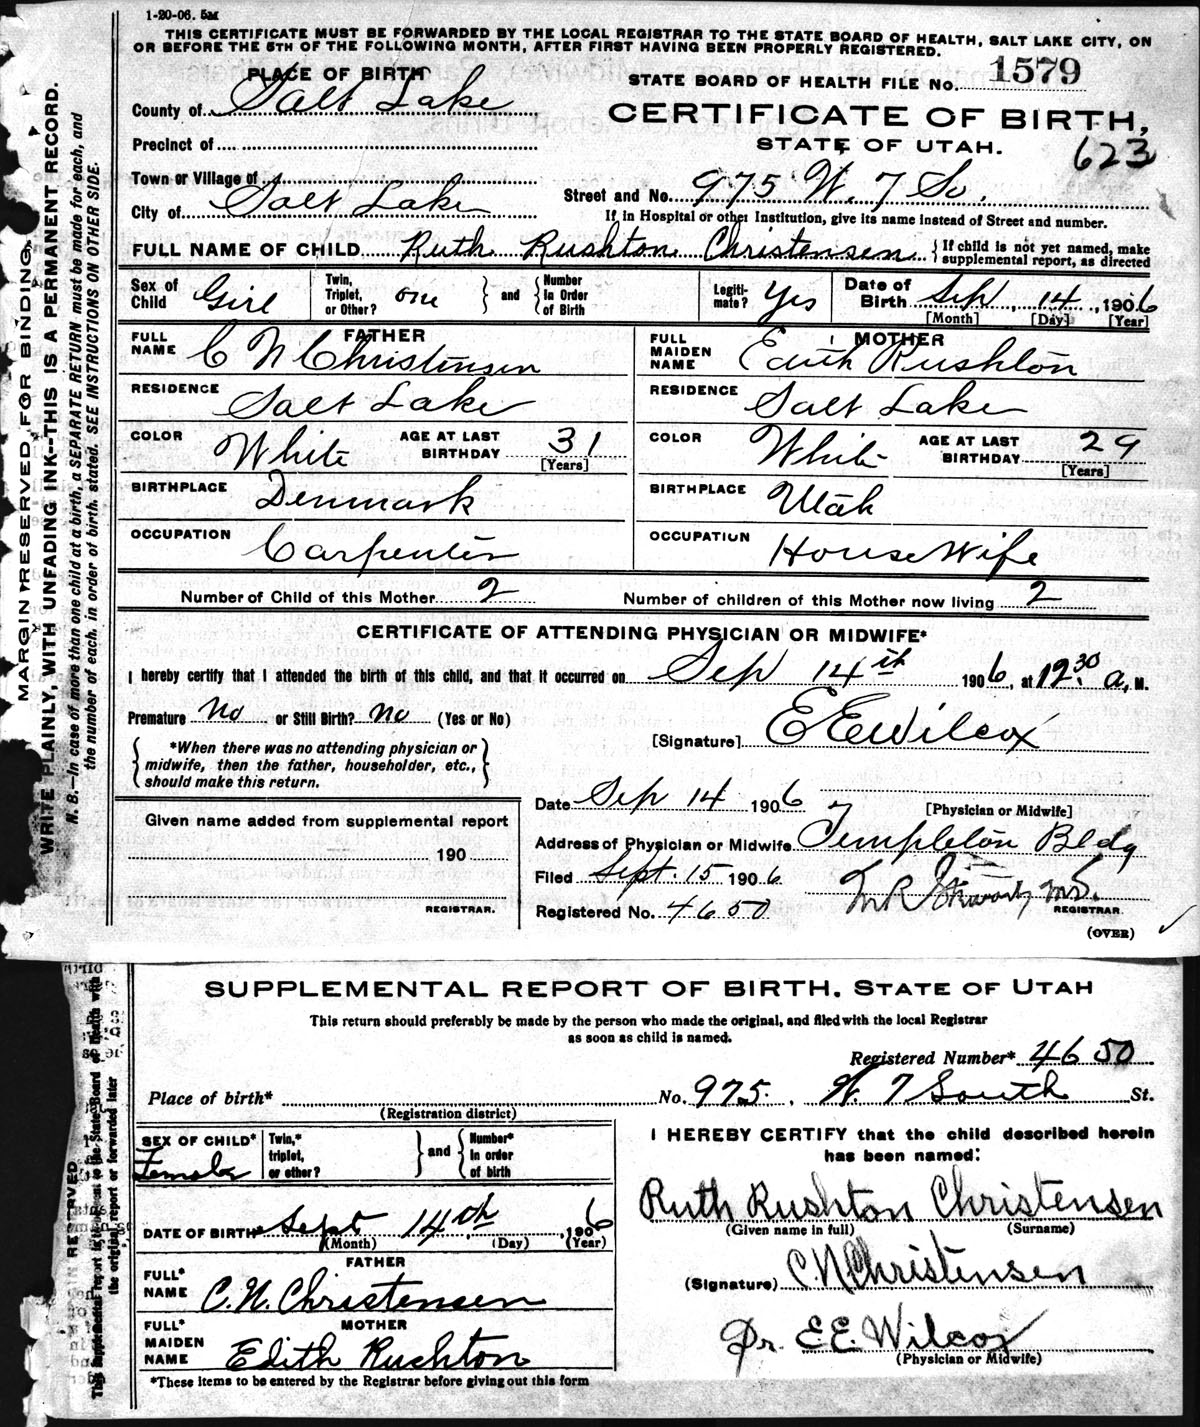 1-20-06. 5M
THIS CERTIFICATE MUST BE FORWARDED BY THE LOCAL REGISTRAR TO THE STATE BOARD OF HEALTH, SALT LAKE CITY, ON
OR BEFORE THE 5TH OF THE FOLLOWING MONTH, AFTER FIRST HAVING BEEN PROPERLY REGISTERED.
PLACE OF BIRTH
STATE BOARD OF HEALTH FILE No. 1579
County of Salt Lake
CERTIFICATE OF BIRTH,
Precinct of
STATE OF UTAH.
623
Town or Village of
Street and No. 975 W. 7 So.
City of Salt Lake
If in Hospital or other Institution, give its name instead of Street and number.
FULL NAME OF CHILD Ruth Rushton Christensen { If child is not yet named, make supplemental report, as directed
Sex of Child Girl Twin, Triplet, or Other? one } and { Number in Order of Birth Legitimate? Yes Date of Birth Sep 14, 1906
[Month] [Day] [Year]
FATHER
FULL NAME C N Christensen
MOTHER
FULL MAIDEN NAME Edith Rushton
RESIDENCE Salt Lake
RESIDENCE Salt Lake
COLOR White AGE AT LAST BIRTHDAY 31 [Years]
COLOR White AGE AT LAST BIRTHDAY 29 [Years]
BIRTHPLACE Denmark
BIRTHPLACE Utah
OCCUPATION Carpenter
OCCUPATION House Wife
Number of Child of this Mother 2 Number of children of this Mother now living 2
CERTIFICATE OF ATTENDING PHYSICIAN OR MIDWIFE*
I hereby certify that I attended the birth of this child, and that it occurred on Sep 14th 1906, at 12:30 a. M.
Premature no or Still Birth? no (Yes or No)
[Signature] E E Wilcox
{ *When there was no attending physician or
midwife, then the father, householder, etc.,
should make this return. }
Date Sep 14 1906
[Physician or Midwife]
Given name added from supplemental report
190
REGISTRAR.
Address of Physician or Midwife Templeton Bldg
Filed Sept. 15 1906
Registered No. 4650
REGISTRAR.
(OVER)
MARGIN RESERVED FOR BINDING.
WRITE PLAINLY, WITH UNFADING INK--THIS IS A PERMANENT RECORD.
N. B.—In case of more than one child at a birth, a SEPARATE RETURN must be made for each, and
the number of each, in order of birth, stated. SEE INSTRUCTIONS ON OTHER SIDE.
SUPPLEMENTAL REPORT OF BIRTH. STATE OF UTAH
This return should preferably be made by the person who made the original, and filed with the local Registrar
as soon as child is named.
Registered Number* 4650
Place of birth* No. 975. W. 7 South St.
(Registration district)
SEX OF CHILD* Female Twin,* triplet, or other? } and { Number* in order of birth
I HEREBY CERTIFY that the child described herein
has been named:
Ruth Rushton Christensen
(Given name in full) (Surname)
DATE OF BIRTH* Sept 14th, 1906
(Month) (Day) (Year)
FATHER
FULL* NAME C. N. Christensen
(Signature) C. N. Christensen
MOTHER
FULL* MAIDEN NAME Edith Rushton
Dr. E. E. Wilcox
(Physician or Midwife)
*These items to be entered by the Registrar before giving out this form